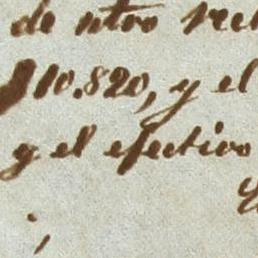 de otro
10.820, y el
y el efectivo